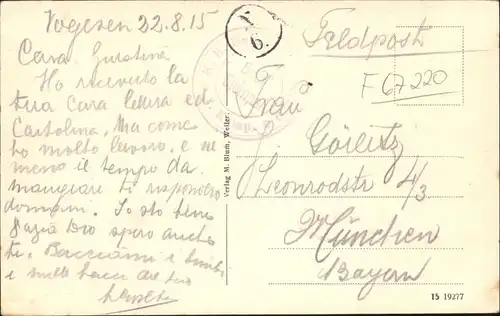 Vogesen 22.8.15
Cara Giustina
Ho ricevuto la
tua Cara lettera ed
Cartolina. Ma come
ho molto lavoro. e ne
meno il tempo da
mangiare ti risponderò
domani. Io sto bene
Dio spero anche
te. Bacciami i bimbi
e mille bacci dal tuo
Feldpost
F 67 220
Frau
Görlitz
Leonrodstr 4/3
München
Bayern
Verlag M. Blum, Weiler.
15 19277